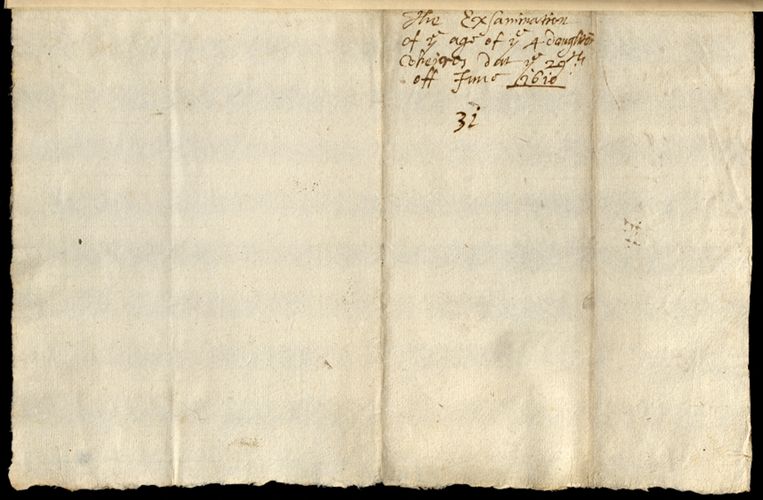 The Exsamination
of yͤ age of yͤ 4 daughters
& heires dat yͤ 29th
off June 1610
31